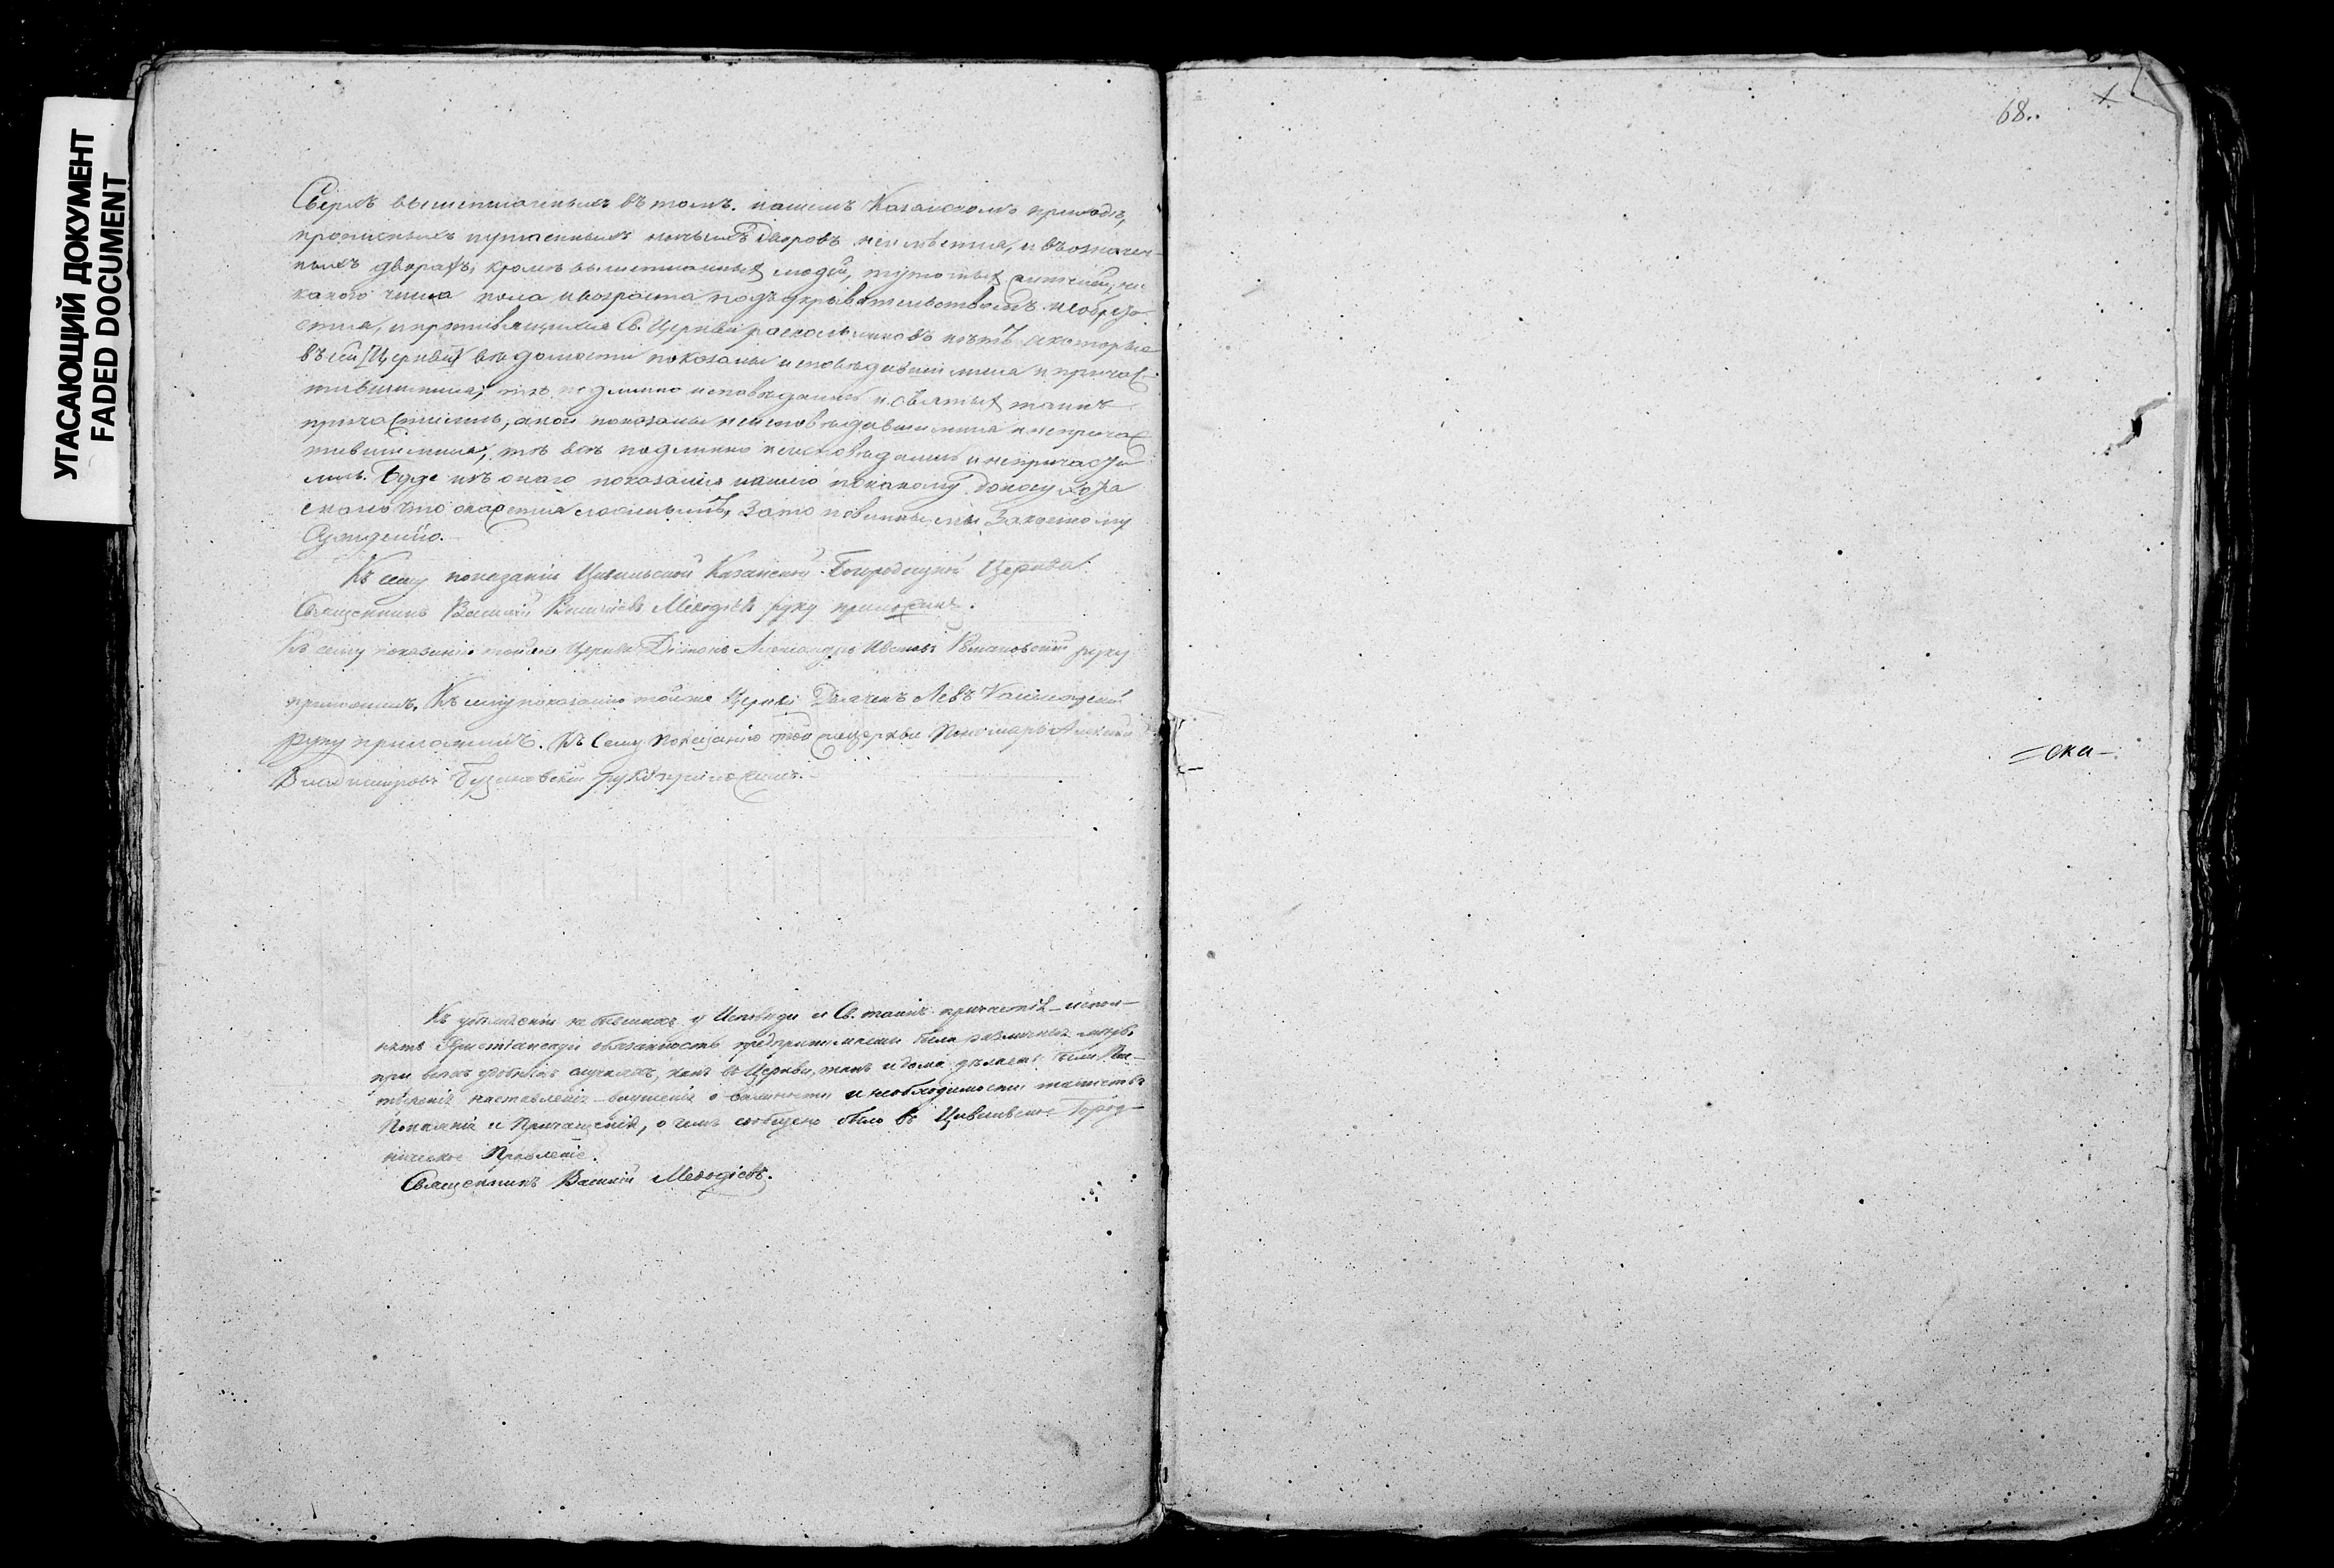 УГАСАЮЩИЙ ДОКУМЕНТ
FADED DOCUMENT
68.
Сверхъ вышеписаныхъ въ томъ нашемъ Казанскомъ приходѣ,
прописныхъ путаенныхъ ничьихъ дворовъ неимѣется, и въ означен-
ныхъ дворахъ, кромѣ вышеписанныхъ людей, жителей, ни
какого чина пола и возраста подъ укрывательствомъ необрѣта-
ется, и противящихся Св. Церкви раскольниковъ нѣтъ а которые
въ сей Церкви вѣдомости показаны исповѣдавшимися и причас-
тившимися, тѣ подлинно исповѣдались и святыхъ таинъ
причастились, а кои показаны неисповѣдавшимися и непричас
тившимися, тѣ всѣ подлинно неисповѣдались и непричасти
лись. Буде изъ онаго показанія нашего по какому доносу хотя
мало что окажется ложнымъ, за то повинны мы законному
сужденію.
Къ сему показанію Цивильской Казанской Богородицкой Церкви
Священникъ Василій Васильевъ Меѳодіевъ руку приложилъ.
Къ сему показанію той же Церкви Діаконъ Александръ руку
приложилъ. Къ сему показанію той же Церкви Дьячекъ Левъ
руку приложилъ. Къ сему показанію той же церкви Пономарь Алексѣй
Владимировъ руку приложилъ.
=ска-
Къ убѣжденію небывшихъ у Исповѣди и Св. таинъ причастія испол-
нять Христіанскую обязанность предпринимаемы были различныя мѣры,
при всѣхъ удобныхъ случаяхъ, какъ въ Церкви, такъ и дома дѣлаемы были
наставленія внушенія о важности и необходимости таинствъ
Покаянія и Причащенія, о чемъ сообщено было въ Цивильское Город-
ническое Правленіе.
Священникъ Василій Меѳодіевъ.